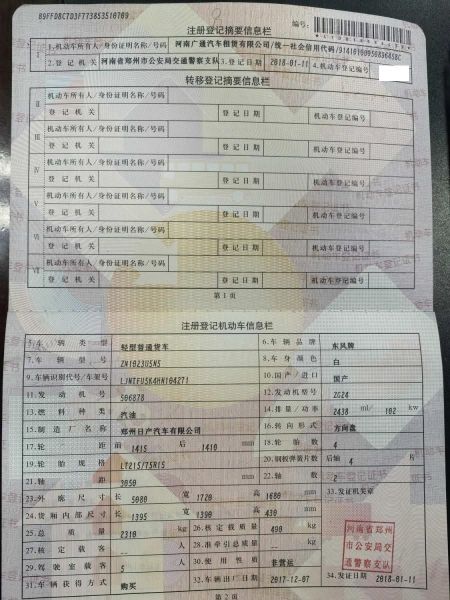 89FFD8CTD3F773853510709
注册登记摘要信息栏
编号:
I
1.机动车所有人/身份证明名称/号码 河南广通汽车租赁有限公司/统一社会信用代码/
2.登记机关 河南省郑州市公安局交通警察支队 3.登记日期 2018-01-11 4.机动车登记编号
转移登记摘要信息栏
II
机动车所有人/身份证明名称/号码
登记机关 登记日期 机动车登记编号
III
机动车所有人/身份证明名称/号码
登记机关 登记日期 机动车登记编号
IV
机动车所有人/身份证明名称/号码
登记机关 登记日期 机动车登记编号
V
机动车所有人/身份证明名称/号码
登记机关 登记日期 机动车登记编号
VI
机动车所有人/身份证明名称/号码
登记机关 登记日期 机动车登记编号
VII
机动车所有人/身份证明名称/号码
登记机关 登记日期 机动车登记编号
第1页
注册登记机动车信息栏
5.车辆类型 轻型普通货车 6.车辆品牌 东风牌
7.车辆型号 ZN1023U5N5 8.车身颜色 白
9.车辆识别代号/车架号 LJNTFU5K4HN104271 10.国产/进口 国产
11.发动机号 506878 12.发动机型号 ZG24
13.燃料种类 汽油 14.排量/功率 2438 ml/ 102 kw
15.制造厂名称 郑州日产汽车有限公司 16.转向形式 方向盘
17.轮距 前 1415 后 1410 mm 18.轮胎数 4
19.轮胎规格 LT215/75R15 20.钢板弹簧片数 后轴 4 片
21.轴距 3050 mm 22.轴数 2
23.外廓尺寸 长 5080 宽 1720 高 1680 mm 33.发证机关章
24.货厢内部尺寸 长 1395 宽 1390 高 430 mm
25.总质量 2310 kg 26.核定载质量 490 kg
27.核定载客 -- 人 28.准牵引总质量 -- kg
29.驾驶室载客 5 人 30.使用性质 非营运
31.车辆获得方式 购买 32.车辆出厂日期 2017-12-07 34.发证日期 2018-01-11
河南省郑州
市公安局交
通警察支队
第2页